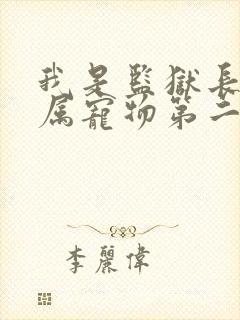 我是監獄長
属寵物第二
李麗偉